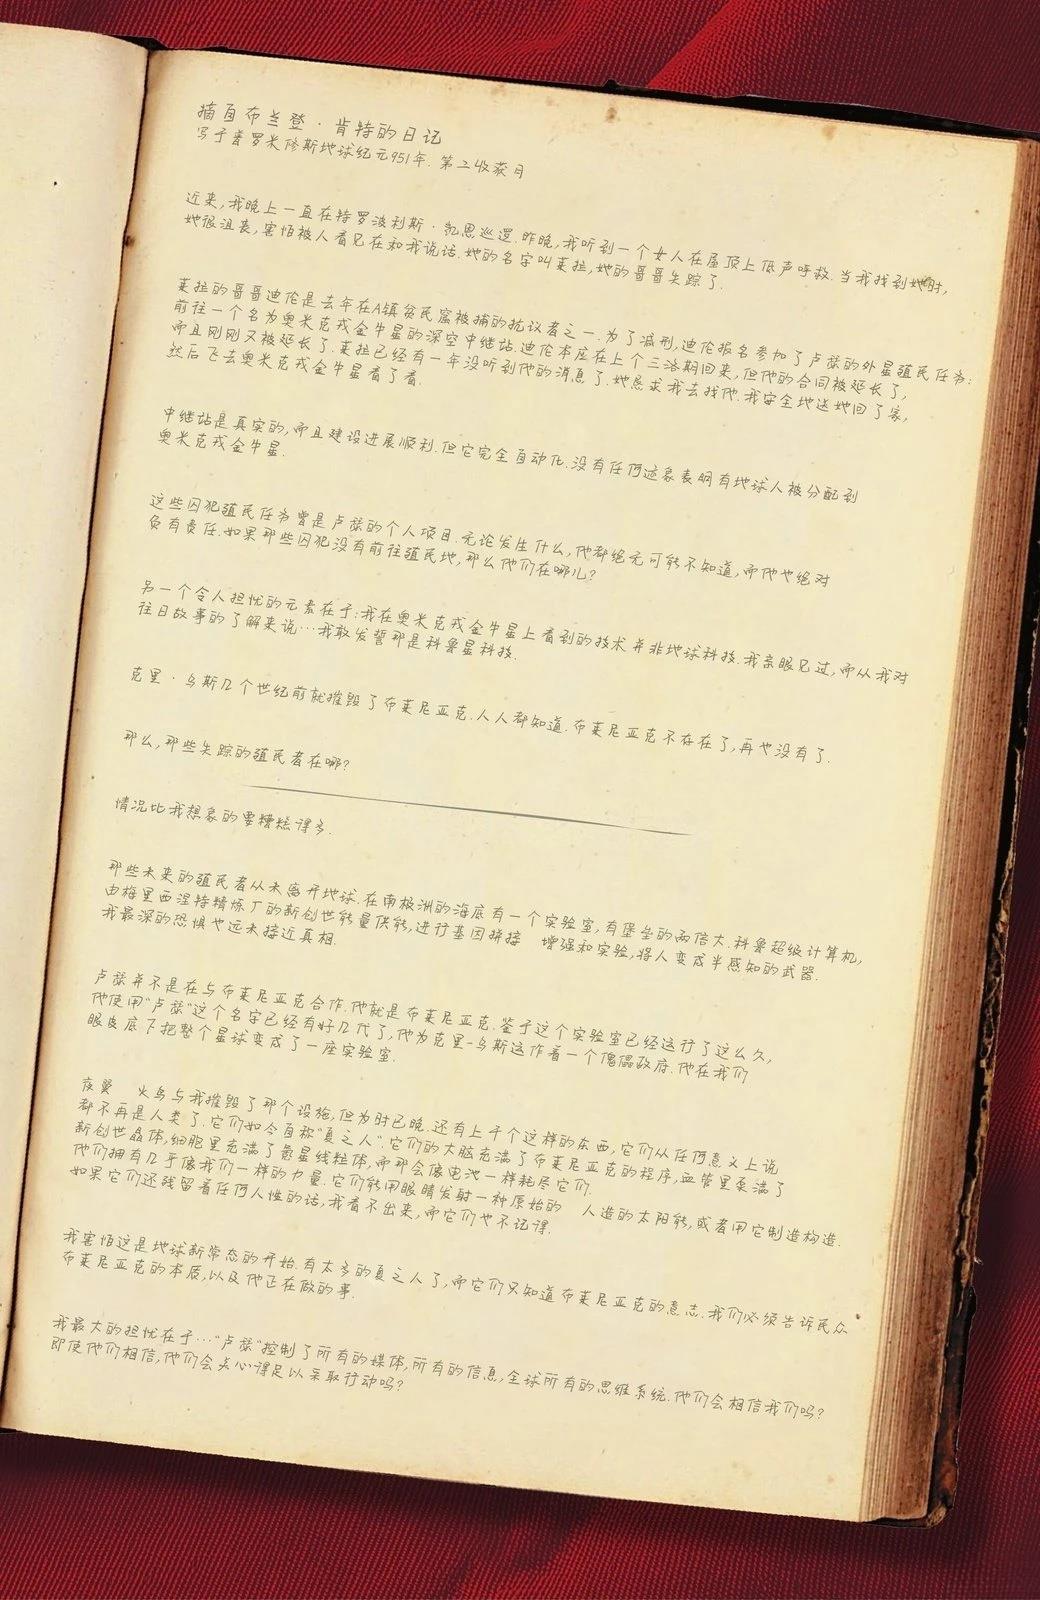 摘自布兰登·肯特的日记
写于普罗米修斯地球纪元951年.第二收获月
近来,我晚上一直在特罗波利斯·凯恩巡逻.昨晚,我听到一个女人在屋顶上低声呼救.当我找到她时,
她很沮丧,害怕被人看见在和我说话.她的名字叫莱拉,她的哥哥失踪了.
莱拉的哥哥迪伦是去年在A镇贫民窟被捕的抗议者之一.为了减刑,迪伦报名参加了卢瑟的外星殖民任务:
前往一个名为奥米克戎金牛星的深空中继站.迪伦本应在上个三洛期回来,但他的合同被延长了,
而且刚刚又被延长了.莱拉已经有一年没听到他的消息了.她恳求我去找他.我安全地送她回了家,
然后飞去奥米克戎金牛星看了看.
中继站是真实的,而且建设进展顺利.但它完全自动化.没有任何迹象表明有地球人被分配到
奥米克戎金牛星.
这些囚犯殖民任务曾是卢瑟的个人项目.无论发生什么,他都绝无可能不知道,而他也绝对
负有责任.如果那些囚犯没有前往殖民地,那么他们在哪儿?
另一个令人担忧的元素在于:我在奥米克戎金牛星上看到的技术并非地球科技.我亲眼见过,而从我对
往日故事的了解来说…我敢发誓那是科鲁星科技.
克里·乌斯几个世纪前就摧毁了布莱尼亚克.人人都知道.布莱尼亚克不存在了,再也没有了.
那么,那些失踪的殖民者在哪?
情况比我想象的要糟糕得多.
那些未来的殖民者从未离开地球.在南极洲的海底有一个实验室,有堡垒的两倍大.科鲁超级计算机,
由梅里西涅特精炼厂的新创世能量供能,进行基因拼接 增强和实验,将人变成半感知的武器.
我最深的恐惧也远未接近真相.
卢瑟并不是在与布莱尼亚克合作.他就是布莱尼亚克.鉴于这个实验室已经运行了这么久,
他使用“卢瑟”这个名字已经有好几代了,他为克里-乌斯运作着一个傀儡政府.他在我们
眼皮底下把整个星球变成了一座实验室.
夜翼 火鸟与我摧毁了那个设施,但为时已晚.还有上千个这样的东西,它们从任何意义上说
都不再是人类了.它们如今自称“夏之人”.它们的大脑充满了布莱尼亚克的程序,血管里泵满了
新创世晶体,细胞里充满了氪星线粒体,而那会像电池一样耗尽它们.
他们拥有几乎像我们一样的力量.它们能用眼睛发射一种原始的 人造的太阳能,或者用它制造构造.
如果它们还残留着任何人性的话,我看不出来,而它们也不记得.
我害怕这是地球新常态的开始.有太多的夏之人了,而它们只知道布莱尼亚克的意志.我们必须告诉民众
布莱尼亚克的本质,以及他正在做的事.
我最大的担忧在于…“卢瑟”控制了所有的媒体,所有的信息,全球所有的思维系统.他们会相信我们吗?
即使他们相信,他们会关心得足以采取行动吗?